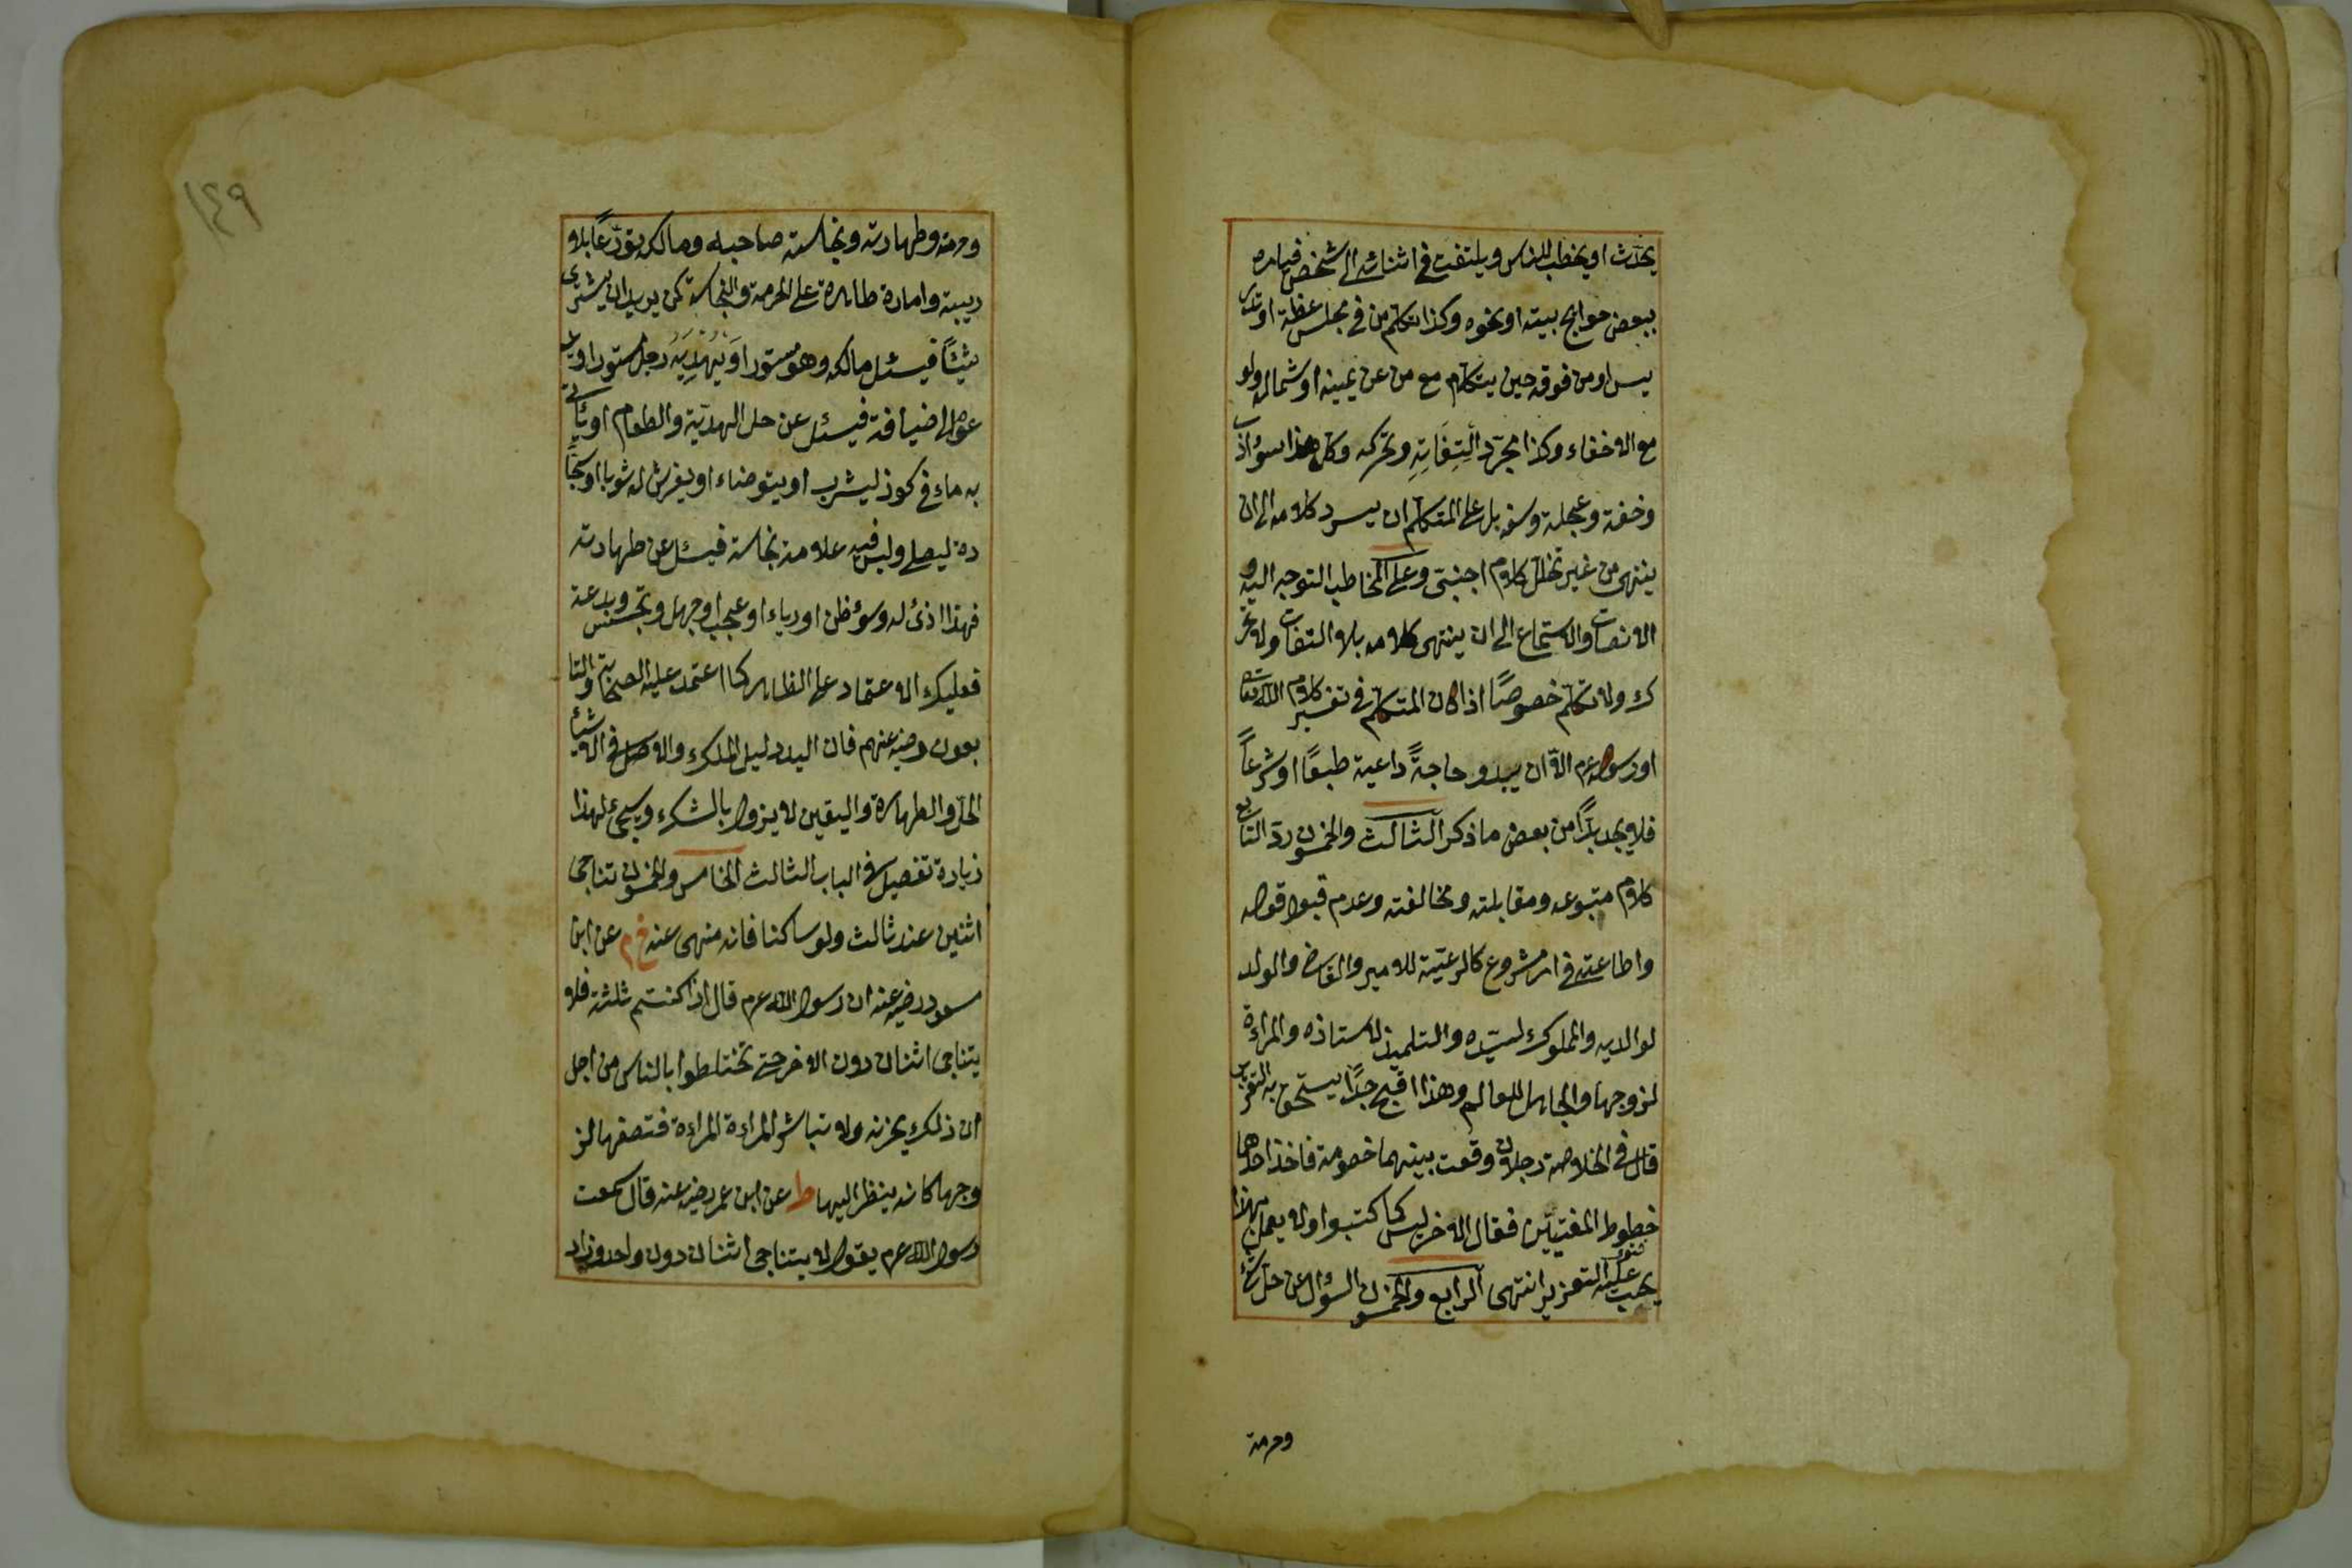 يحدث او يخطب للناس ويلتفت في اثنائه الى شخص فيامره
ببعض حوايج بيته او نحوه وكذا تكلم من في مجلس عظة او تدر
يس او من فوقه حين يتكلم مع من عن يمينه او شماله ولو
مع الاخفاء وكذا مجرد التِفَاتِهِ وتحركه وكل هذا سوء ادب
وخفة وعجلة وسفه بل على المتكلم ان يسرد كلامه الى ان
ينتهى من غير تخلل كلام اجنبى وعلى المخاطب التوجه اليه و
الانصات والاستماع الى ان ينتهى كلامه بلا التفات ولا تحر
ك ولا تكلم خصوصًا اذا كان المتكلم في تفسير كلام الله تعا
او رسوله عم الاّ ان يبدو حاجةً داعية طبعًا او شرعاً
فلا يجد بدًّا من بعض ما ذكر الثالث والخمسون ردّ التابع
كلام متبوعه ومقابلته ومخالفته وعدم قبول قوله
واطاعته في امر مشروع كالرعيّة للامير والقاضى والولد
لوالديه والمملوك لسيّده والتلميذ لاستاذه والمراءة
لزوجها والجاهل للعالم وهذا قبيح جدًّا يستحق به التعزير
قال في الخلاصة رجلان وقعت بينهما خصومة فاخذ احدهما
خطوط المفتيين فقال الاخر ليس كما كتبوا ولا يعمل بهذا
يجب عليه التعزير انتهى الرابع والخمسون السؤال عن حل شئ
وحرمة
١٤٩
وحرمته وطهارته ونجاسته صاحبه ومالكه تورّعًا بلا
ريبة وامارة ظاهرة على الحرمة والنجاسة كمن يريد ان يشترى
شيئًا فيسئل مالكه وهو مستور اوَ يُهْدِيَهُ رجل مستور او يد
عوه الى ضيافة فيسئل عن حل الهديّة والطعام او يأتى
به ماء في كوز ليشرب او يتوضاء او يفرش له ثوبا او سجّا
دة ليصلى وليس فيه علامة نجاسة فيسئل عن طهارته
فهذا اذى له وسوء ظن او رياء او عجب او جهل وتجسس وبدعة
فعليك الاعتماد على الظاهر كما اعتمد عليه الصحابة والتا
بعون رضي عنهم فان اليد دليل الملك والاصل في الاشياء
الحل والطهارة واليقين لا يزول بالشك وسيجئ لهذا
زيادة تفصيل في الباب الثالث الخامس والخمسون تناجى
اثنين عند ثالث ولو ساكنا فانه منهى عنه خ م عن ابن
مسعود رضي عنه ان رسول الله عم قال اذا كنتم ثلثة فلا
يتناجى اثنان دون الاخر حتى تختلطوا بالناس من اجل
ان ذلك يحزنه ولا تباشر المراءة المراءة فتصفها لز
وجها كانه ينظر اليها ط عن ابن عمر رضي عنه قال سمعت
رسول الله عم يقول لا يتناجى اثنان دون واحد وزاد